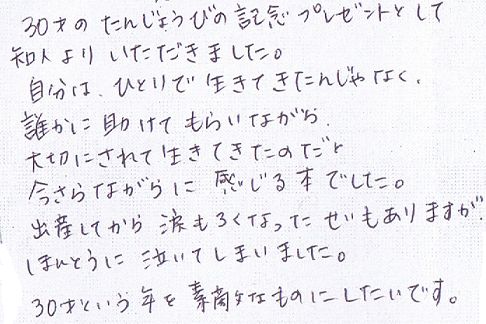 30才の たんじょうびの 記念 プレゼントとして
知人より いただきました。
自分は、ひとりで 生きてきたんじゃなく、
誰かに 助けて もらいながら、
大切にされて 生きてきたのだと
今さらながらに 感じる本でした。
出産してから 涙もろくなった せいもありますが、
ほんとうに 泣いてしまいました。
30才という 年を 素敵なものにしたいです。